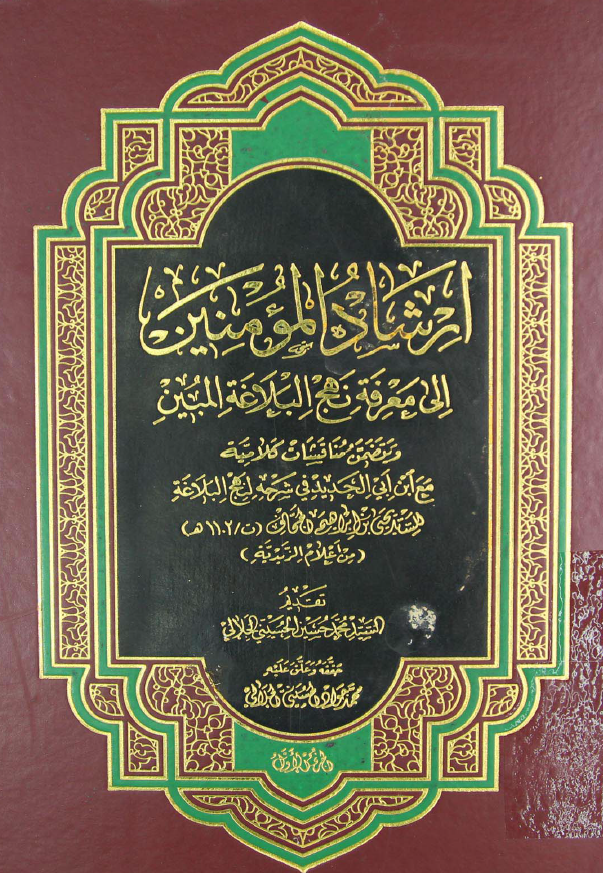 إرشاد المؤمنين
إلى معرفة نهج البلاغة المبين
وتتضمن مناقشات كلامية
مع ابن أبي الحديد في شرحه لنهج البلاغة
للسيد يحيى بن إبراهيم الجحافي (ت/١١٠٢هـ)
(من أعلام الزيدية)
تقديم
السيد محمد حسين الحسيني الجلالي
حققه وعلق عليه
محمد جواد الحسيني الجلالي
الجزء الأول